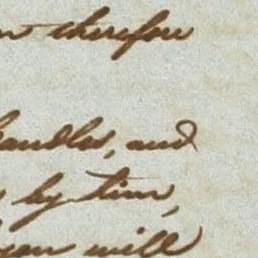 therefore
handles, and
by time,
you will